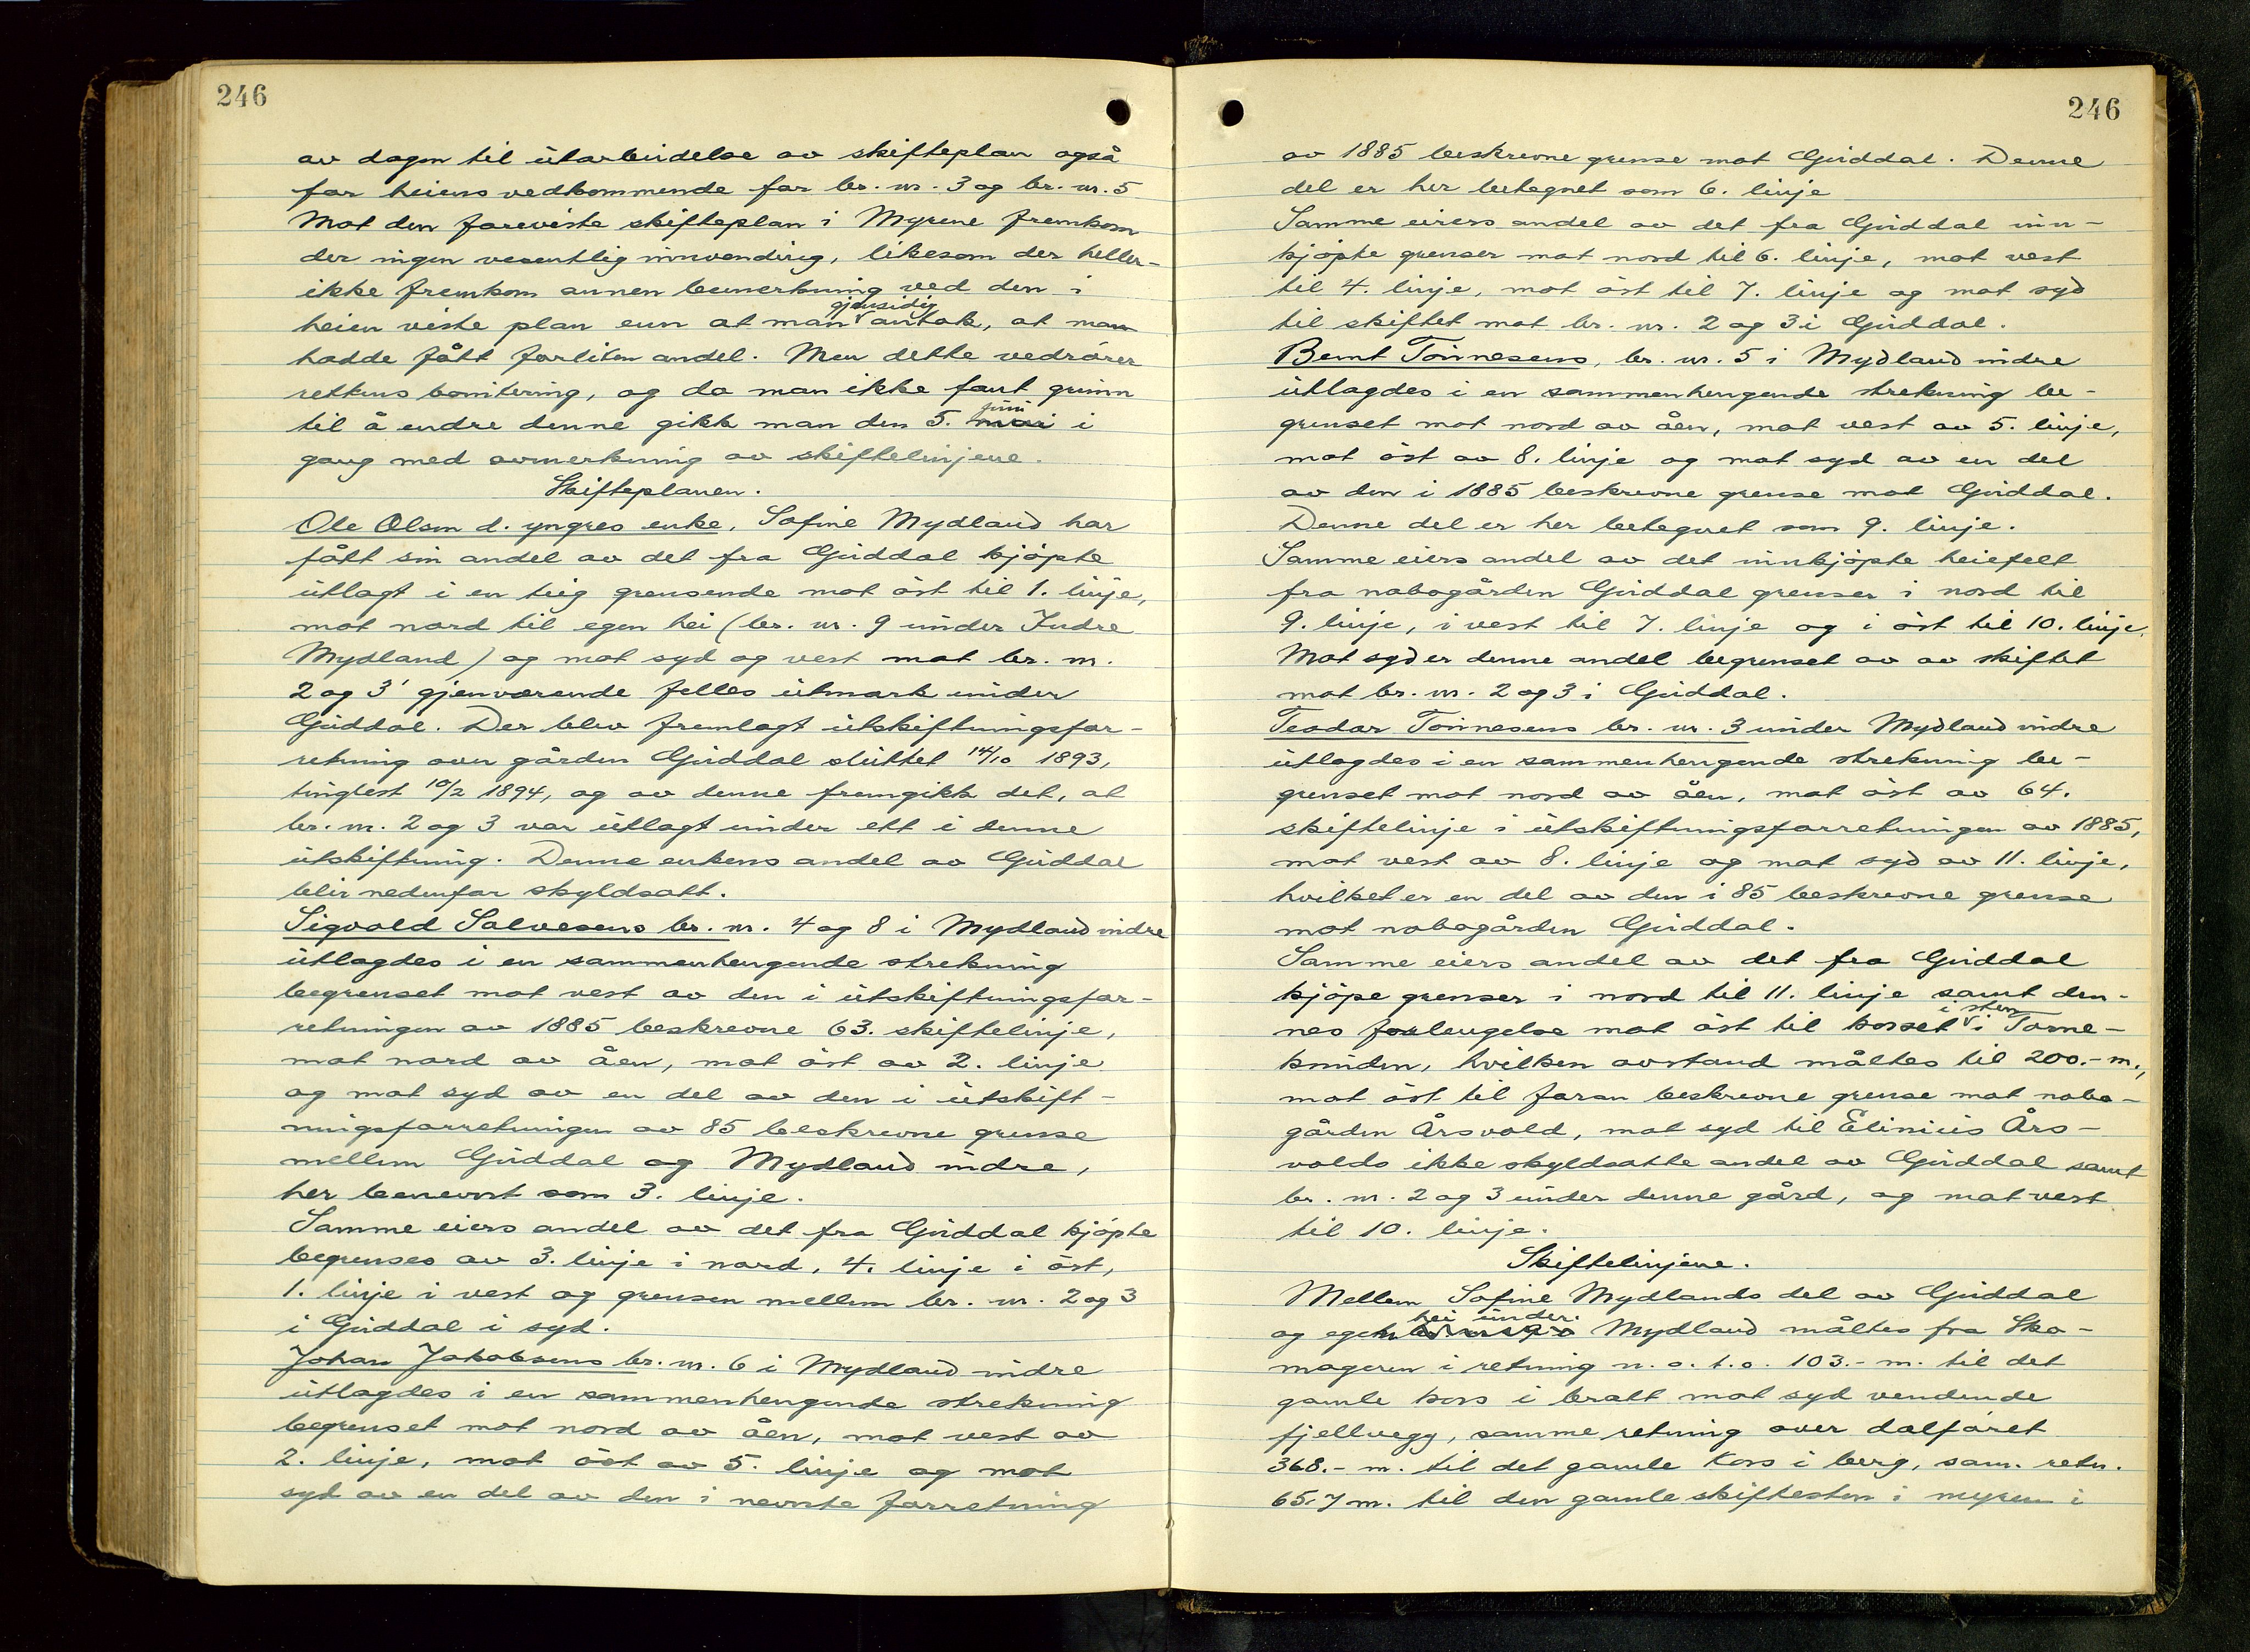 246
av dagen til utarbeidelse av skifteplan også
for heiens vedkommende for br. nr. 3 og br. nr. 5
Mot den foreviste skifteplan i Myrene fremkom
der ingen vesentlig innvending, likesom der heller-
ikke fremkom annen bemerkning ved den i
heien viste plan enn at man gjensidig antok, at man
hadde fått forliten andel. Men dette vedrører
rettens bonitering, og da man ikke fant grunn
til å endre denne gikk man den 5. juni i
gang med avmerkning av skiftelinjene.
Skifteplanen.
Ole Olsen d. yngres enke, Sofine Mydland har
fått sin andel av det fra Guddal kjøpte
utlagt i en teig grensende mot øst til 1. linje,
mot nord til egen hei (br. nr. 9 under Indre
Mydland) og mot syd og vest mot br. nr.
2 og 3' gjenværende felles utmark under
Guddal. Der blev fremlagt utskiftningsfor-
retning over gården Guddal sluttet 14/10 1893,
tinglest 10/2 1894, og av denne fremgikk det, at
br. nr. 2 og 3 var utlagt under ett i denne
utskiftning. Denne enkens andel av Guddal
blir nedenfor skyldsatt.
Sigvald Salvesens br. nr. 4 og 8 i Mydland indre
utlagdes i en sammenhengende strekning
begrenset mot vest av den i utskiftningsfor-
retningen av 1885 beskrevne 63. skiftelinje,
mot nord av åen, mot øst av 2. linje
og mot syd av en del av den i utskift-
ningsforretningen av 85 beskrevne grense
mellem Guddal og Mydland indre,
her benevnt som 3. linje.
Samme eiers andel av det fra Guddal kjøpte
begrenses av 3. linje i nord, 4. linje i øst,
1. linje i vest og grensen mellem br. nr. 2 og 3
i Guddal i syd.
Johan Jakobsens br. nr. 6 i Mydland indre
utlagdes i en sammenhengende strekning
begrenset mot nord av åen, mot vest av
2. linje, mot øst av 5. linje og mot
syd av en del av den i nevnte forretning
246
av 1885 beskrevne grense mot Guddal. Denne
del er her betegnet som 6. linje
Samme eiers andel av det fra Guddal inn-
kjøpte grenser mot nord til 6. linje, mot vest
til 4. linje, mot øst til 7. linje og mot syd
til skiftet mot br. nr. 2 og 3 i Guddal.
Bernt Tønnesens, br. nr. 5 i Mydland indre
utlagdes i en sammenhengende strekning be-
grenset mot nord av åen, mot vest av 5. linje,
mot øst av 8. linje og mot syd av en del
av den i 1885 beskrevne grense mot Guddal.
Denne del er her betegnet som 9. linje.
Samme eiers andel av det innkjøpte heiefelt
fra nabogården Guddal grenser i nord til
9. linje, i vest til 7. linje og i øst til 10. linje.
Mot syd er denne andel begrenset av av skiftet
mot br. nr. 2 og 3 i Guddal.
Teodor Tønnesens br. nr. 3 under Mydland indre
utlagdes i en sammenhengende strekning be-
grenset mot nord av åen, mot øst av 64.
skiftelinje i utskiftningsforretningen av 1885,
mot vest av 8. linje og mot syd av 11. linje,
hvilket er en del av den i 85 beskrevne grense
mot nabogården Guddal.
Samme eiers andel av det fra Guddal
kjøpe grenser i nord til 11. linje samt den-
nes forlengelse mot øst til korset i sten i Torne-
knuden, hvilken avstand måltes til 200.- m.,
mot øst til foran beskrevne grense mot nabo-
gården Årsvold, mot syd til Elinius Års-
volds ikke skyldsatte andel av Guddal samt
br. nr. 2 og 3 under denne gård, og mot vest
til 10. linje.
Skiftelinjene.
Mellem Sofine Mydlands del av Guddal
og egen hei under Mydland måltes fra Sko-
mageren i retning n. o. t. o. 103.- m. til det
gamle kors i bratt mot syd vendende
fjellvegg, samme retning over dalføret
368.- m. til det gamle kors i berg, sam. retn.
65,7 m. til den gamle skiftesten i myren i